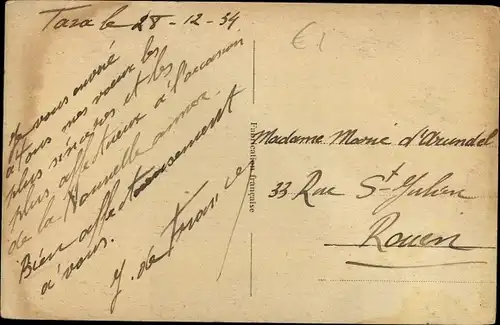 Taza le 28-12-34
Je vous envoie
à tous mes voeux les
plus sincères et les
plus affectueux à l'occasion
de la Nouvelle année.
Bien affectueusement
à vous.
J. de
Fabrication française
Madame Marié d'Arundel
33 Rue St Julien
Rouen
€1